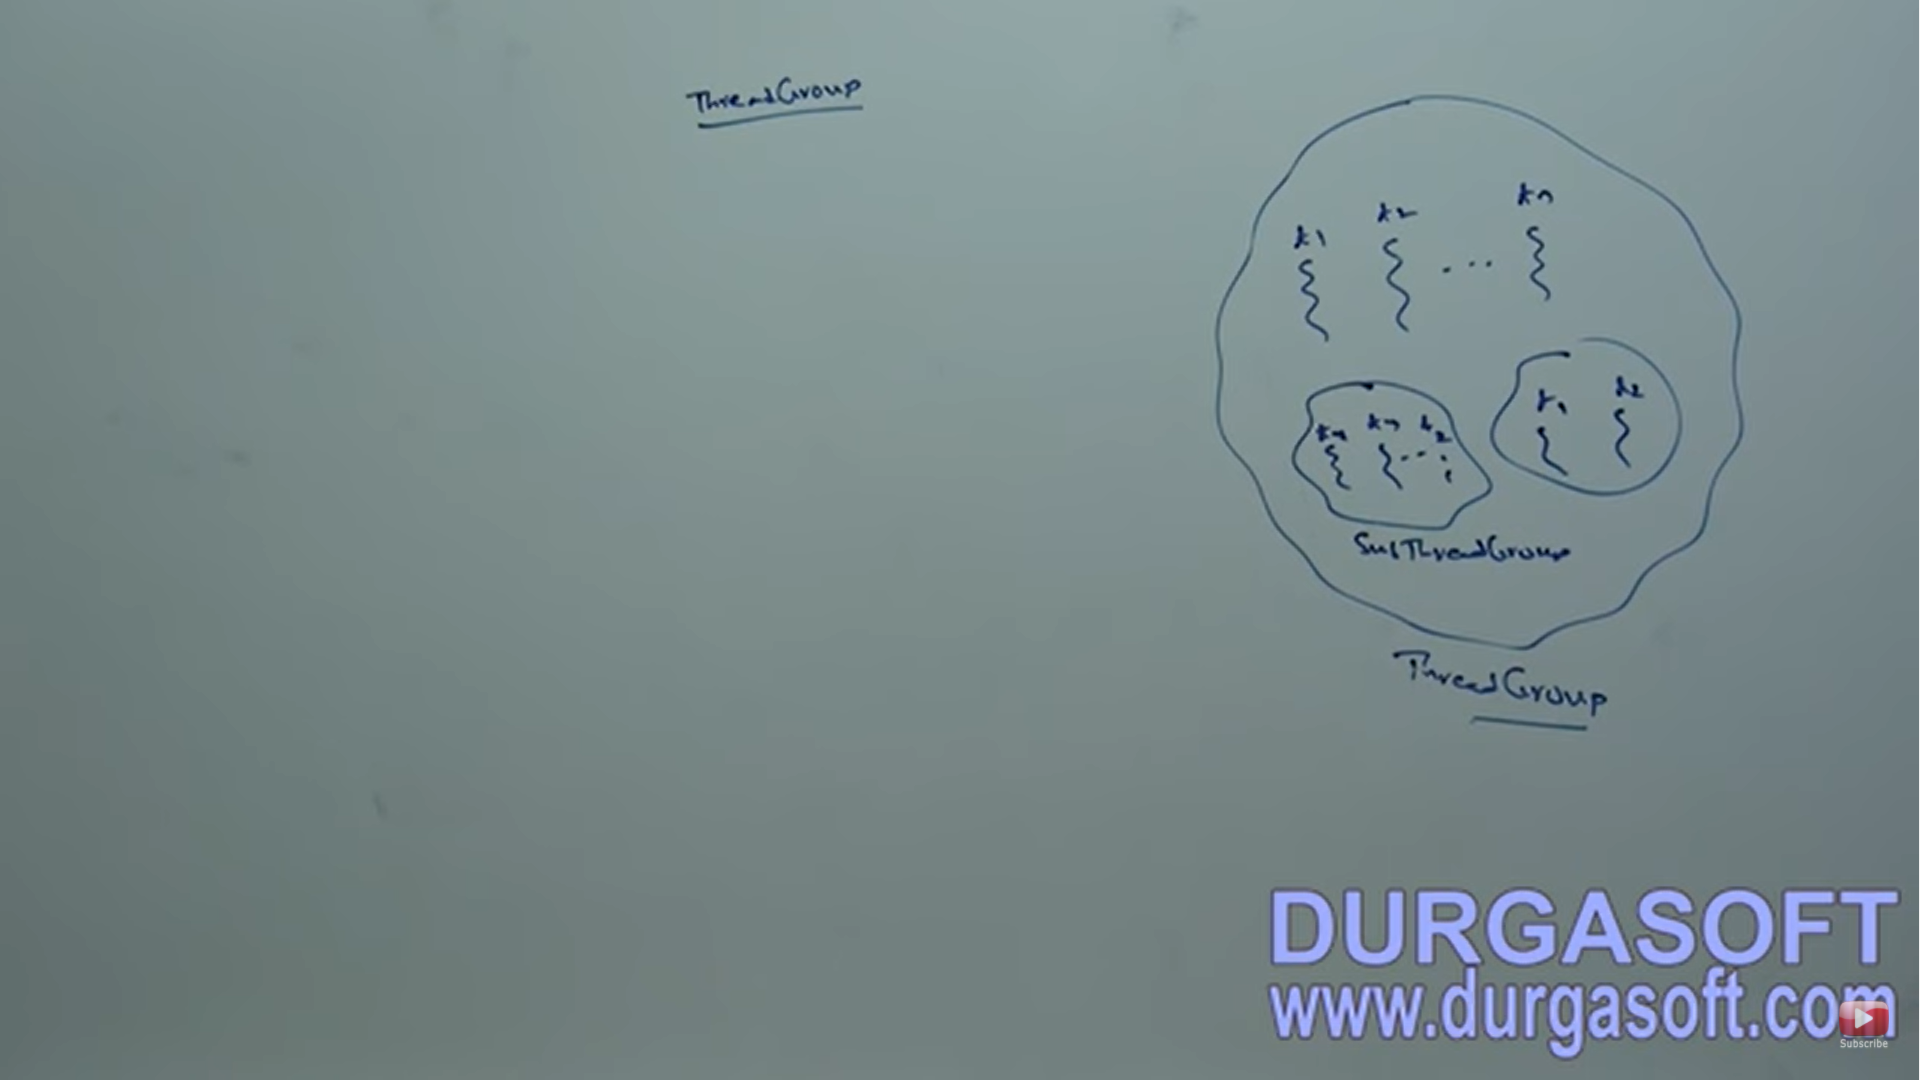 ThreadGroup
t1 t2 ... tn
t1 t2
SubThreadGroup
ThreadGroup
DURGASOFT
www.durgasoft.com
Subscribe